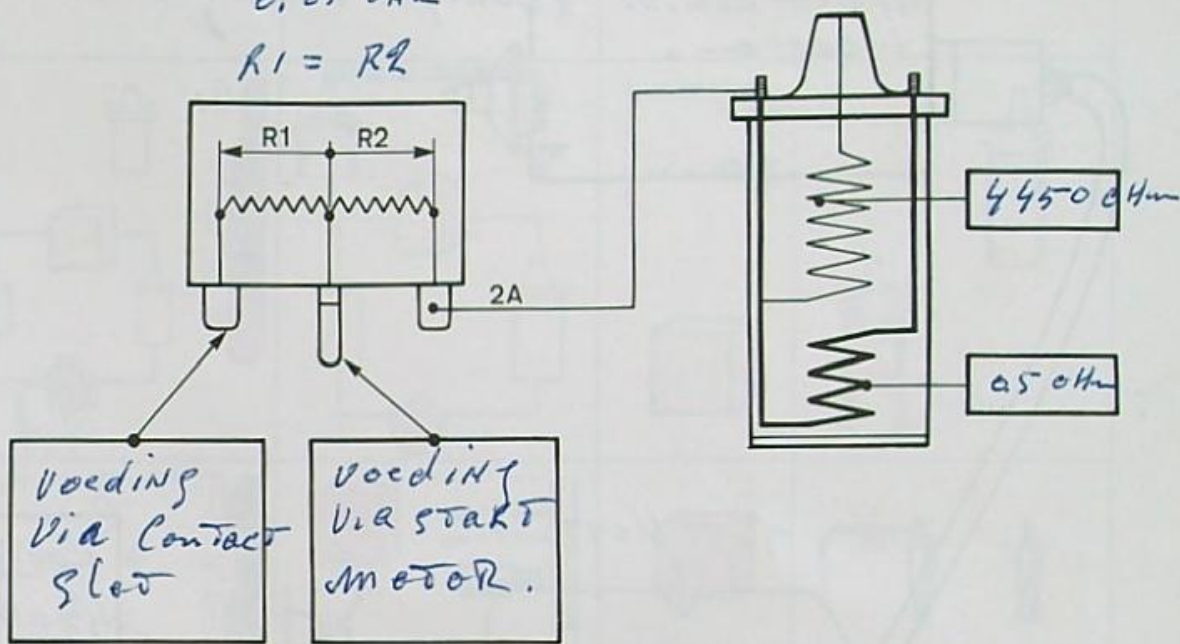 R1 = R2
R1 R2
4450 oHm
2A
0.5 oHm
voeding
via Contact
slot
voeding
via start
motor.